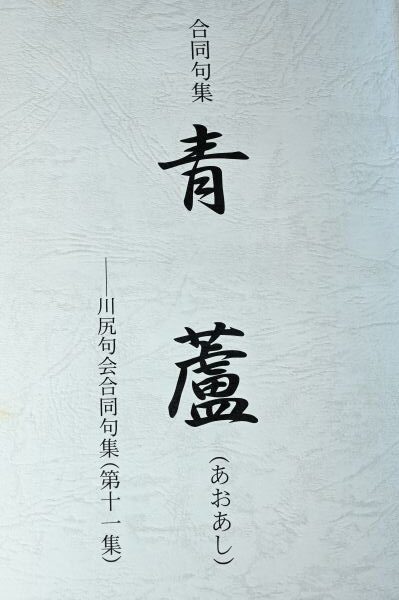 合同句集
青蘆
(あおあし)
―川尻句会合同句集(第十一集)